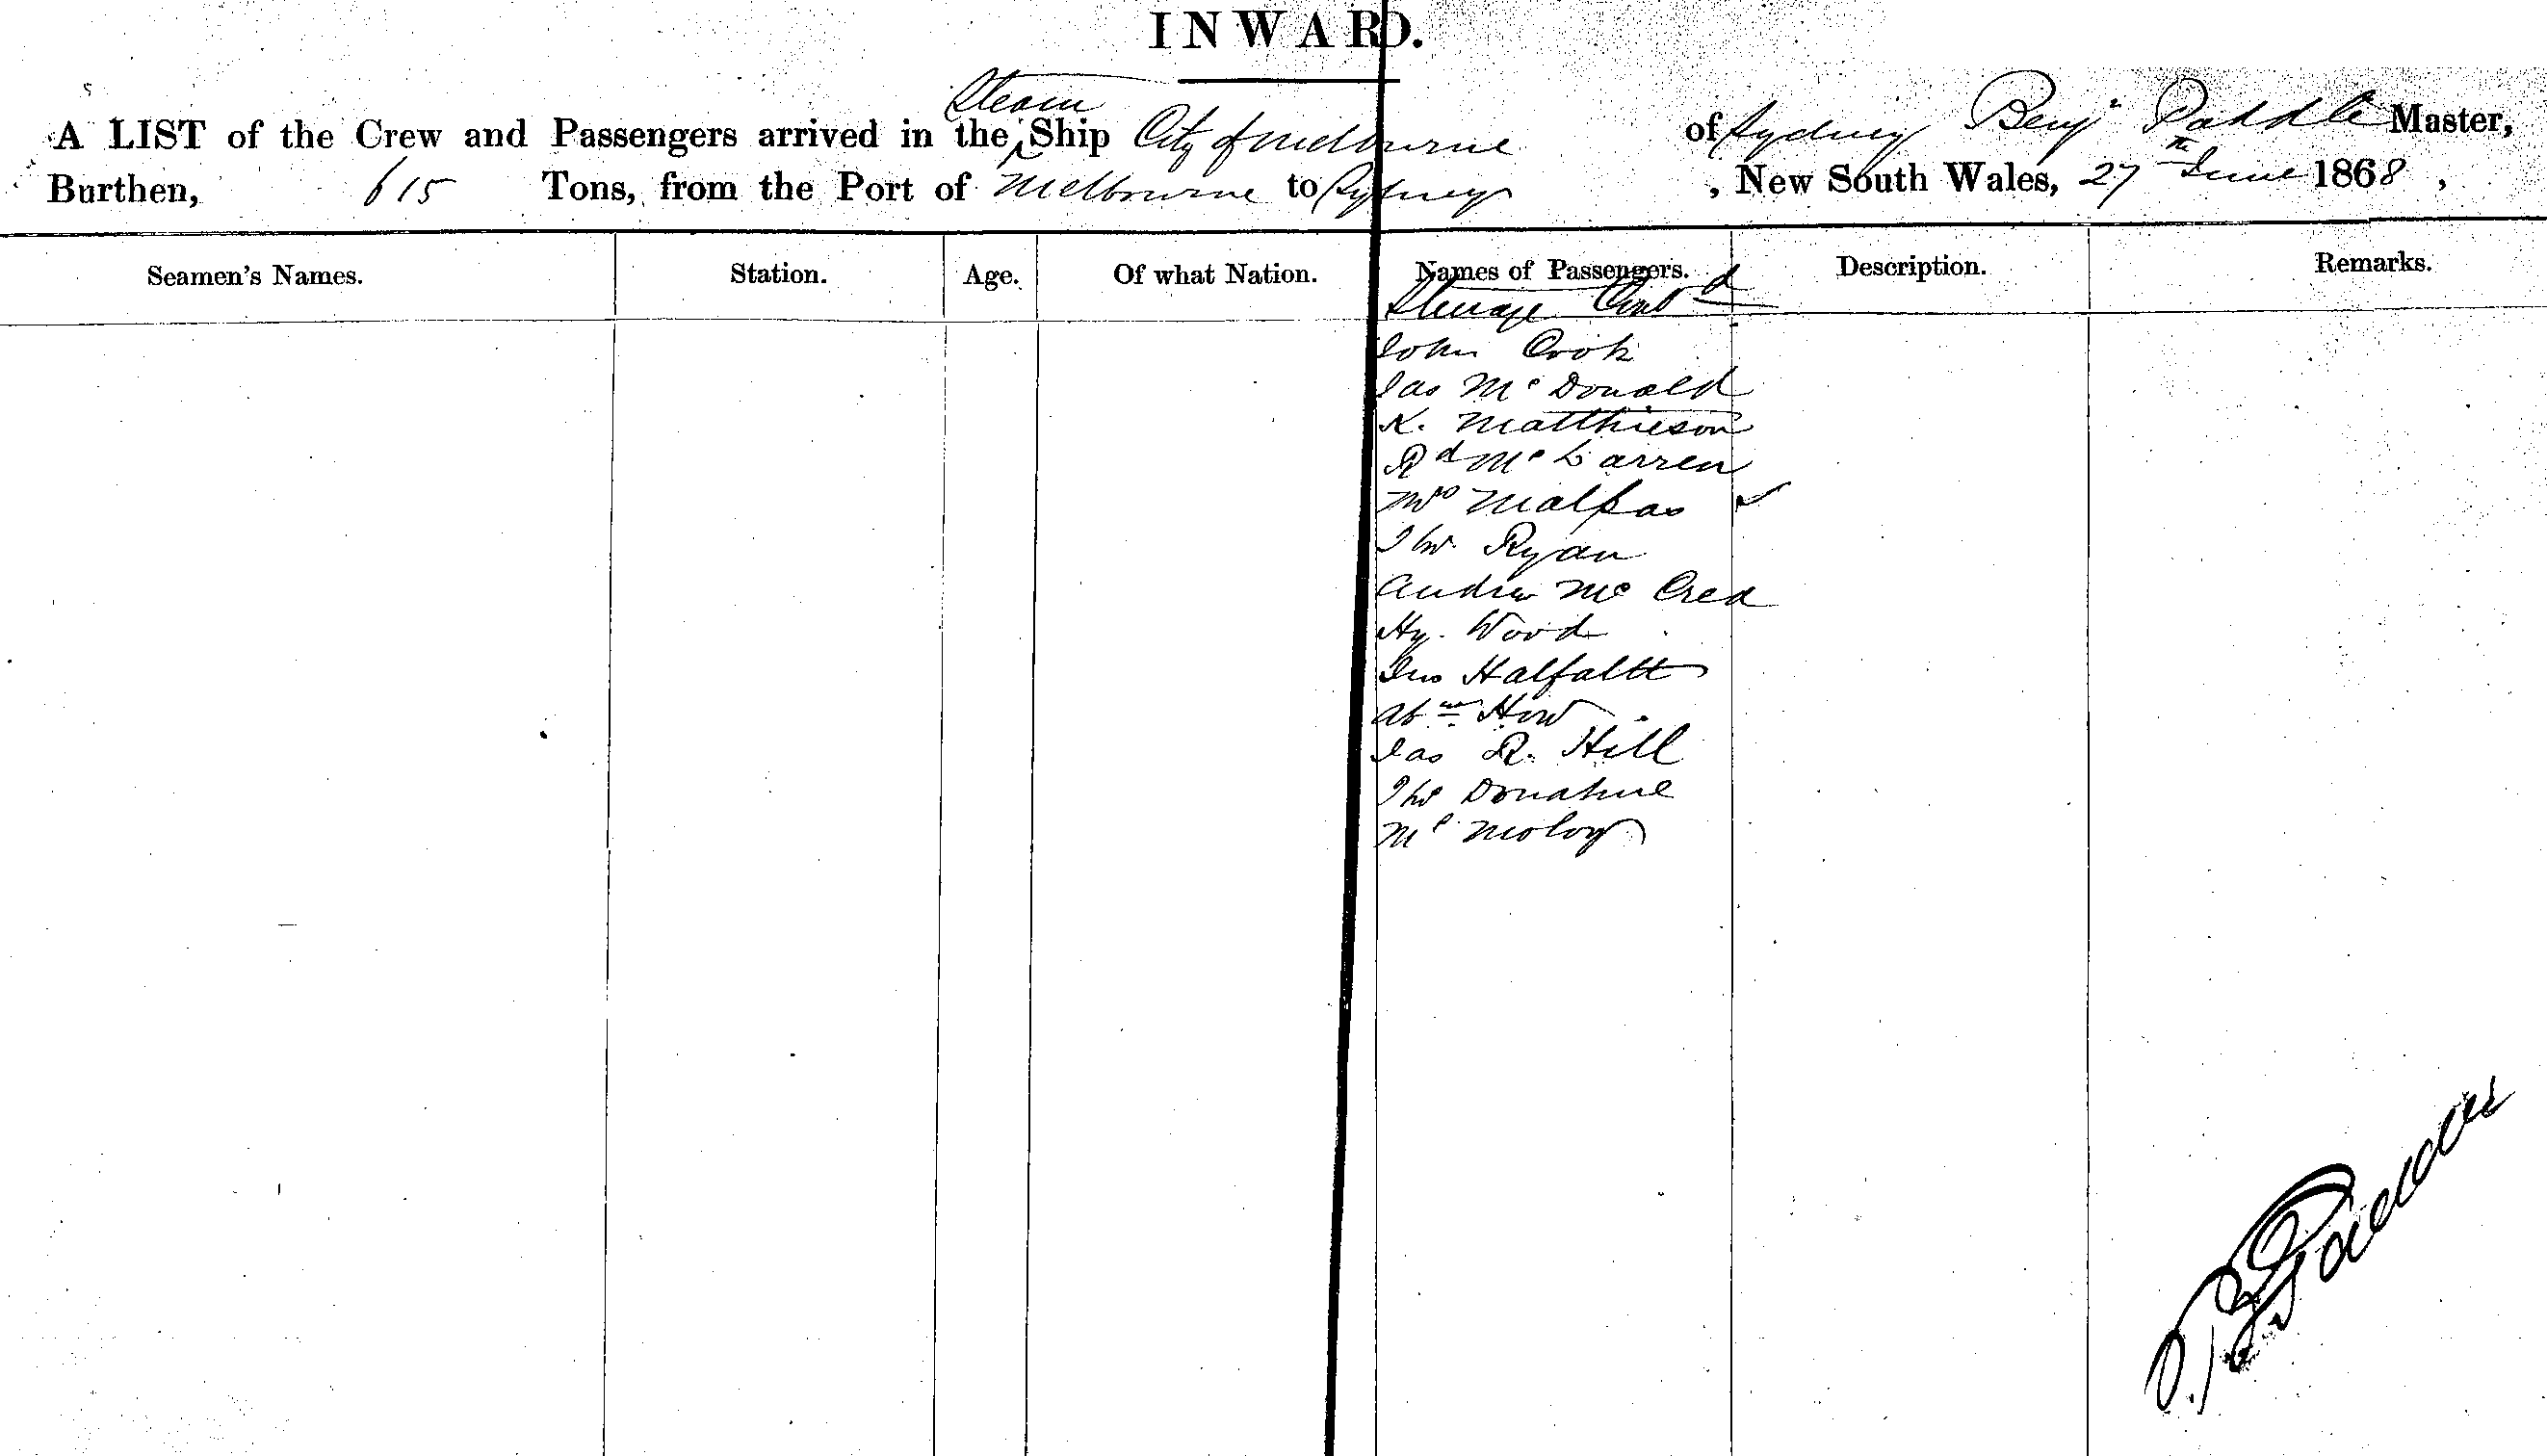 INWARD.
Steam
A LIST of the Crew and Passengers arrived in the Ship City of Melbourne of Sydney Benj Paddle Master,
Burthen, 615 Tons, from the Port of Melbourne to Sydney, New South Wales, 27th June 1868,
Seamen's Names. Station. Age. Of what Nation. Names of Passengers. Description. Remarks.
Steerage Contd
John Cook
Jas McDonald
K. Matthieson
Rd McLarren
Mrs Malpas
Tho. Ryan
Andrew McCrea
Hy. Wood
Jno Halfaltt
Abm How
Jas R. Hill
Tho Donahue
Ml Moloy